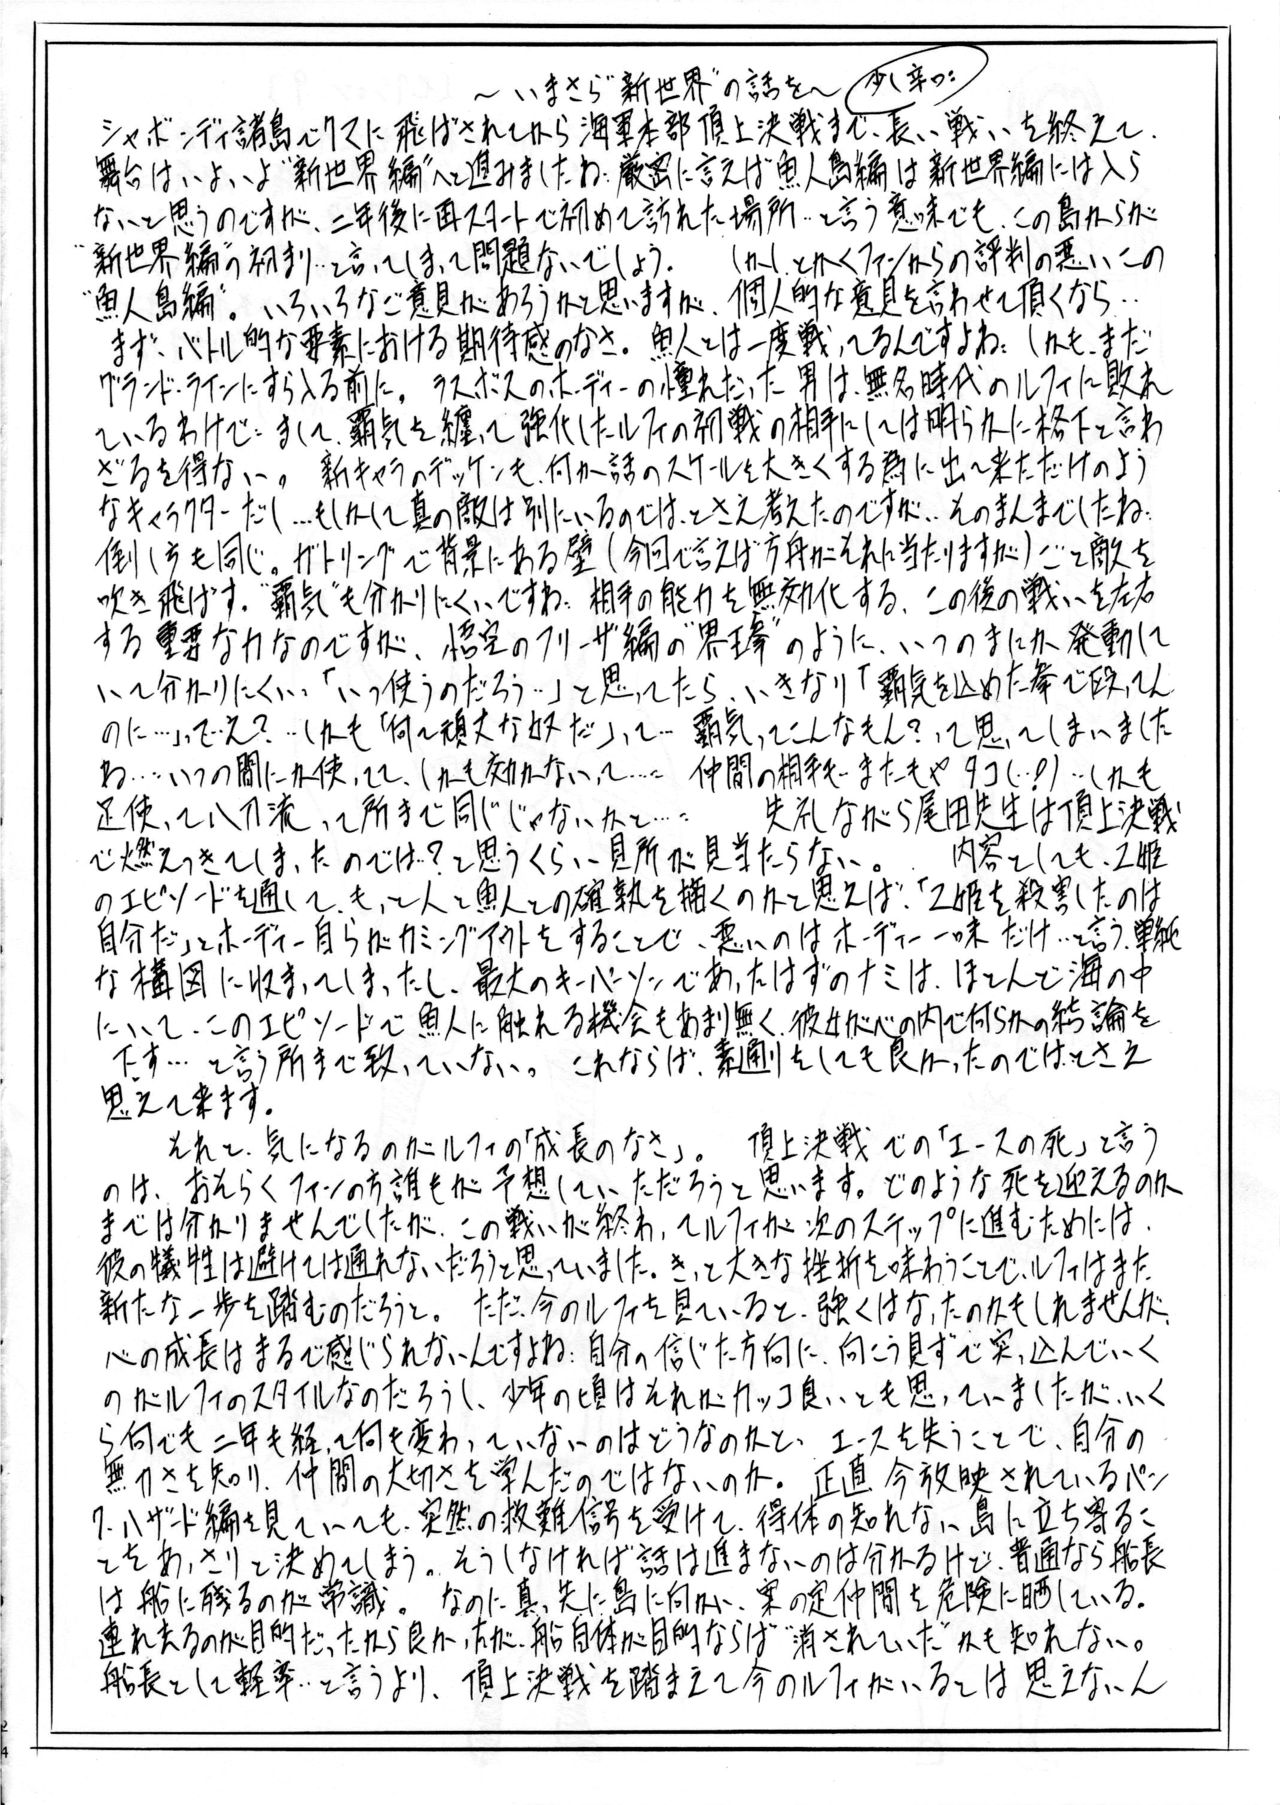 〜いまさら"新世界"の話を〜 少し辛口:
シャボンディ諸島でクマに飛ばされてから海軍本部頂上決戦まで、長い戦いを終えて、
舞台はいよいよ"新世界編"へと進みましたね: 厳密に言えば魚人島編は新世界編には入ら
ないと思うのですが、二年後に再スタートで初めて訪れた場所…と言う意味でも、この島からが
"新世界編"の初まり…と言ってしまって問題ないでしょう。 しかし、とかくファンからの評判の悪いこの
"魚人島編"。いろいろなご意見があろうかと思いますが、個人的な意見を言わせて頂くなら…
まず、バトル的な要素における期待感のなさ。魚人とは一度戦ってるんですよね: しかも、まだ
グランド・ラインにすら入る前に。 ラスボスのホーディーの憧れだった男は、無名時代のルフィに敗れ
ているわけで: まして、覇気を纏って強化したルフィの初戦の相手にしては明らかに格下と言わ
ざるを得ない。 新キャラのデッケンも、何か話のスケールを大きくする為に出て来ただけのよう
なキャラクターだし…もしかして真の敵は別にいるのでは、とさえ考えたのですが‥そのまんまでしたね:
倒し方も同じ。ガトリングで背景にある壁(今回で言えば方舟がそれに当たりますが)ごと敵を
吹き飛ばす。"覇気"も分かりにくいですね: 相手の能力を無効化する、この後の戦いを左右
する重要な力なのですが、悟空のフリーザ編の"界王拳"のように、いつのまにか発動して
いて分かりにくい…「いつ使うのだろう…」と思ってたら、いきなり「覇気を込めた拳で殴ってん
のに…」って…え?…しかも「何て頑丈な奴だ」って… 覇気ってこんなもん?って思ってしまいました
ね…:いつの間にか使ってて、しかも効かないって…: 仲間の相手も…またもやタコ(…!)…しかも
足使って八刀流って所まで同じじゃないかと…: 失礼ながら尾田先生は頂上決戦
で燃えつきてしまったのでは?と思うくらい見所が見当たらない。 内容としても、乙姫
のエピソードを通して、もっと人と魚人との確執を描くのかと思えば、「乙姫を殺害したのは
自分だ」とホーディー自らがカミングアウトをすることで、悪いのはホーディー一味だけ…と言う、単純
な構図に収まってしまったし、最大のキーパーソンであったはずのナミは、ほとんど海の中
にいて、このエピソードで魚人に触れる機会もあまり無く、彼女が心の内で何らかの結論を
下す…と言う所まで致っていない。 これならば、素通りをしても良かったのでは、とさえ
思えて来ます。
それと、気になるのがルフィの「成長のなさ」。 頂上決戦での「エースの死」と言う
のは、おそらくファンの方誰もが予想していただろうと思います。どのような死を迎えるのか
までは分かりませんでしたが、この戦いが終わってルフィが次のステップに進むためには、
彼の犠牲は避けては通れないだろうと思っていました。きっと大きな挫折を味わうことで、ルフィはまた
新たな一歩を踏むのだろうと。 ただ、今のルフィを見ていると、強くはなったのかもしれませんが、
心の成長はまるで感じられないんですよね: 自分の信じた方向に、向こう見ずで突っ込んでいく
のがルフィのスタイルなのだろうし、少年の頃はそれがカッコ良いとも思っていましたが、いく
ら何でも二年も経って何も変わっていないのはどうなのかと、 エースを失うことで、自分の
無力さを知り、仲間の大切さを学んだのではないのか。 正直、今放映されているパン
ク・ハザード編を見ていても、突然の救難信号を受けて、得体の知れない島に立ち寄るこ
とをあっさりと決めてしまう。そうしなければ話は進まないのは分かるけど、普通なら船長
は船に残るのが常識。 なのに真っ先に島に向かい、案の定仲間を危険に晒している。
連れ去るのが目的だったから良かったが、船自体が目的ならば"消されていた"かも知れない。
船長として軽率…と言うより、頂上決戦を踏まえて今のルフィがいるとは思えないん
24